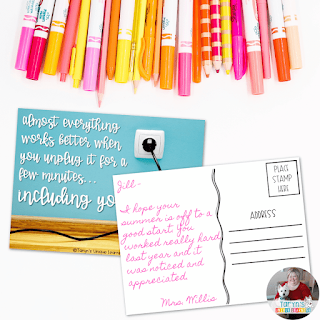 almost everything
works better when
you unplug it for a
few minutes...
including yo
Jill-
I hope your
summer is off to a
good start. You
worked really hard
last year and it
was noticed and
appreciated.
Mrs. Willis
PLACE
STAMP
HERE
ADDRESS
Tanya's